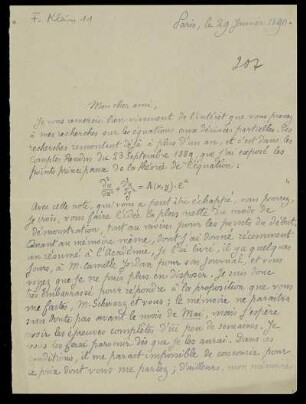 F. Klein 11
Paris, le 29 Janvier 1890.
207
Mon cher ami,
Je vous remercie bien vivement de l'intérêt que vous prenez
à mes recherches sur les équations aux dérivées partielles. Ces
recherches remontent déjà à plus d'un an, et c'est dans les
Comptes Rendus du 23 Septembre 1889, que j'ai exposé les
points principaux de la théorie de l'équation.
∂²u/∂x² + ∂²u/∂y² = A(x,y) · eᵘ
Avec cette note, qui vous a peut être échappé, vous pouvez,
je crois, vous faire l'idée la plus nette du mode de
démonstration, tout au moins pour les points de départ.
Quant au mémoire même, dont j'ai donné récemment
un résumé à l'Académie, je l'ai livré, il y a quelques
jours, à M. Camille Jordan pour son Journal, et vous
voyez que je ne puis plus en disposer. Je suis donc
très embarrassé pour répondre à la proposition que vous
me faites, M. Schwarz et vous; le mémoire ne paraîtra
sans doute pas avant le mois de Mai, mais j'espère
avoir les épreuves complètes d'ici peu de semaines. Je
vous les ferai parvenir dès que je les aurai. Dans ces
conditions, il me paraît impossible de concourir pour
le prix dont vous me parlez; d'ailleurs, mon mémoire